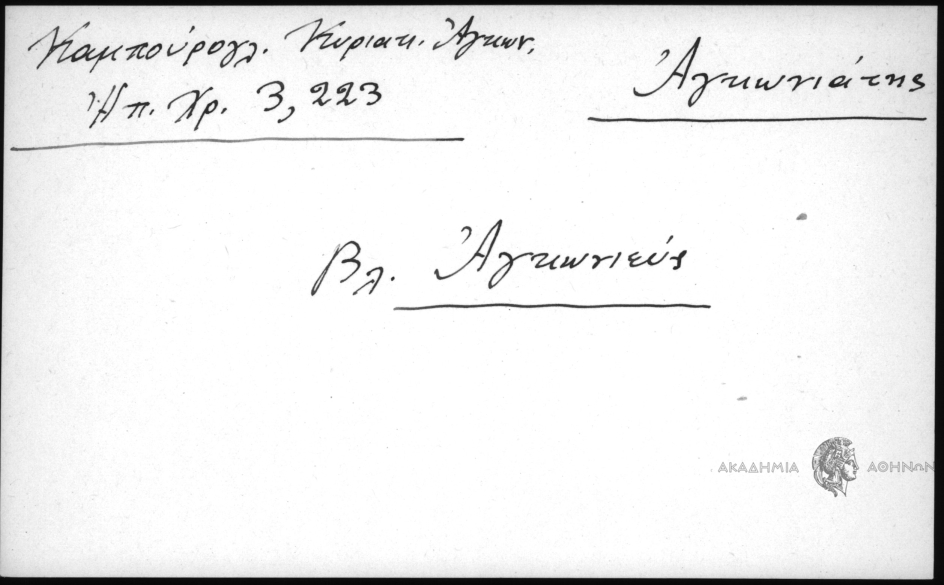 Καμπούρογλ. Κυριακ. Ἀγκων.
Ἠπ. Χρ. 3, 223
Ἀγκωνιάτης
Βλ. Ἀγκωνιεύς
ΑΚΑΔΗΜΙΑ ΑΘΗΝΩΝ